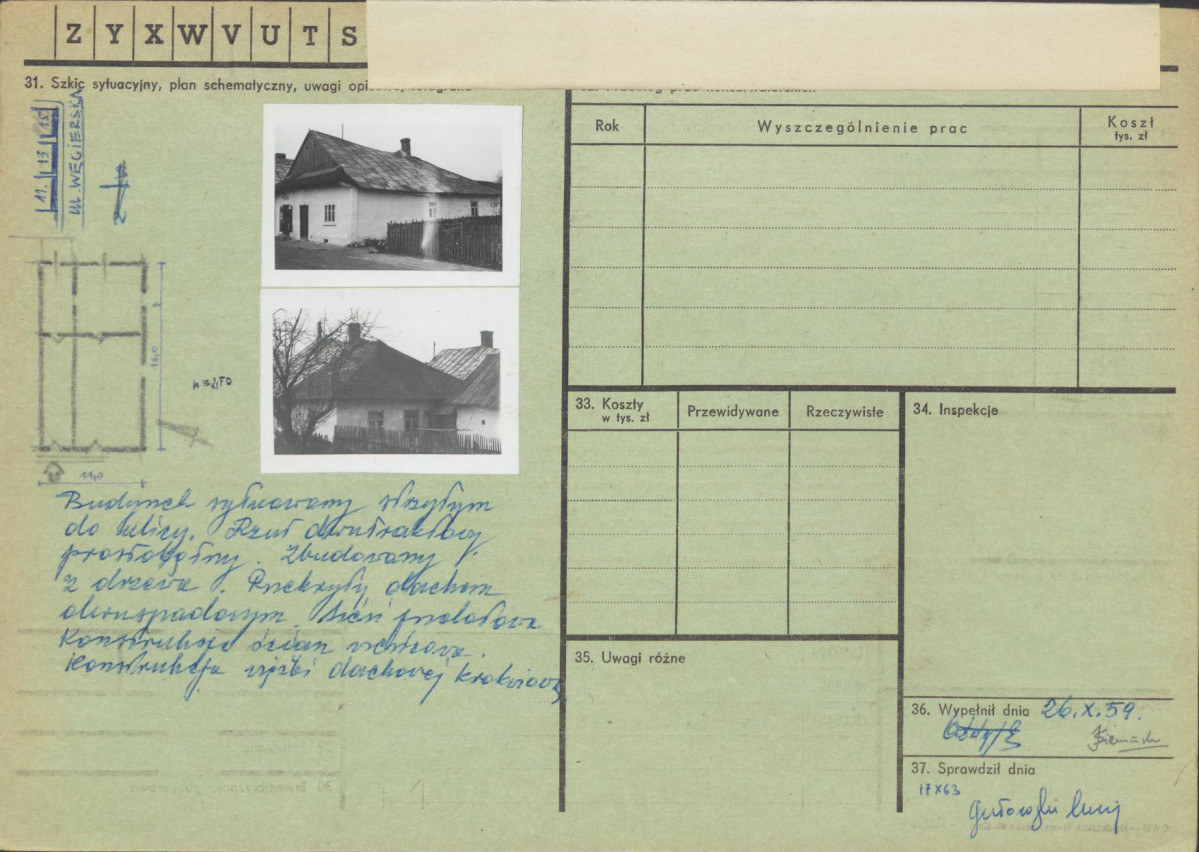 Z Y X W V U T S
31. Szkic sytuacyjny, plan schematyczny, uwagi
11. 13 15
ul. WĘGIERSKA
16,0
11,0
Budynek sytuowany szczytem
do ulicy. Rzut dwutraktowy
prostokątny. Zbudowany
z drzewa. Przekryty dachem
dwuspadowym. Sień przelotowa
Konstrukcja ścian
Konstrukcja więźby dachowej krokwiowa
Rok
Wyszczególnienie prac
Koszt
tys. zł
33. Koszty
w tys. zł
Przewidywane
Rzeczywiste
34. Inspekcje
35. Uwagi różne
36. Wypełnił dnia 26.X.59.
37. Sprawdził dnia
17 X 63